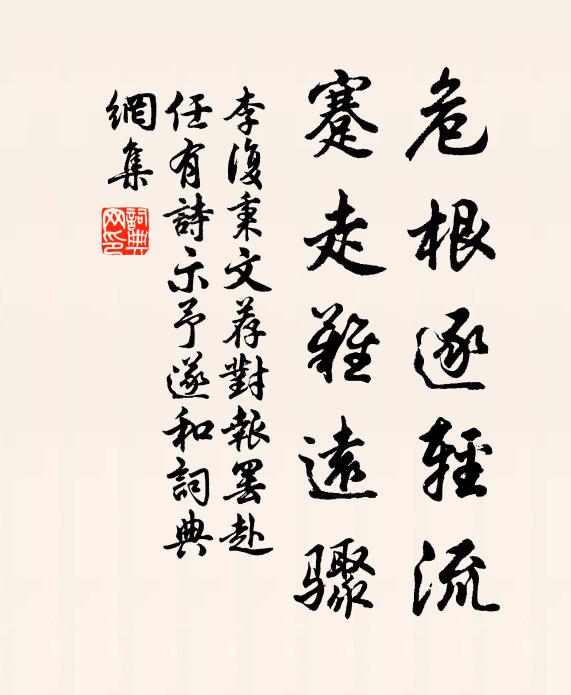 危根逐輕流
蹇走難遠驟
李復秉文荐對報罷赴
任有詩示予遂和詞典
網集
詞典網印